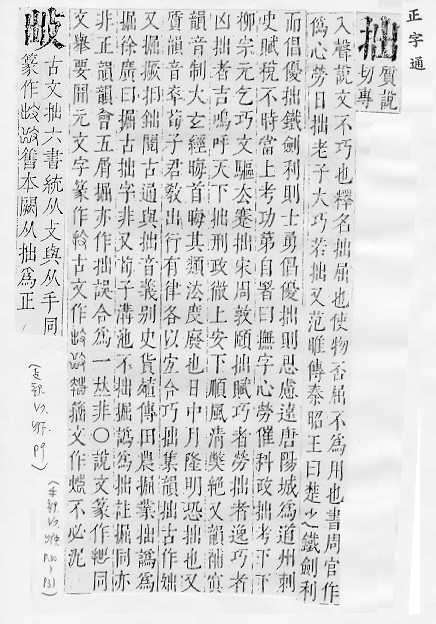 正字通
拙
質說
切專
入聲說文不巧也釋名拙屈也使物否屈不為用也書周官作
偽心勞日拙老子大巧若拙又范雎傳秦昭王曰楚之鐵劍利
而倡優拙鐵劍利則士勇倡優拙則思慮遠唐陽城為道州刺
史賦稅不時當上考功第自署曰撫字心勞催科政拙考下下
柳宗元乞巧文驅去蹇拙宋周敦頤拙賦巧者勞拙者逸巧者
凶拙者吉嗚呼天下拙刑政徹上安下順風清獘絕又韻補寘
韻音制太玄經晦首晦其類法度廢也日中月隆明恐拙也又
質韻音卒荀子君敎出行有律各以宜舍巧拙集韻拙古作
又掘撅柮鈯閱古通與拙音義別史貨殖傳田農掘業拙譌為
掘徐廣曰掘古拙字非又荀子溝池不拙掘譌為拙註掘同亦
非正韻韻會五屑掘亦作拙誤合為一𠀤非○說文篆作同
文舉要開元文字篆作古文作籀文作不必泥
古文拙六書統从攴與从手同
篆作舊本闕从拙為正